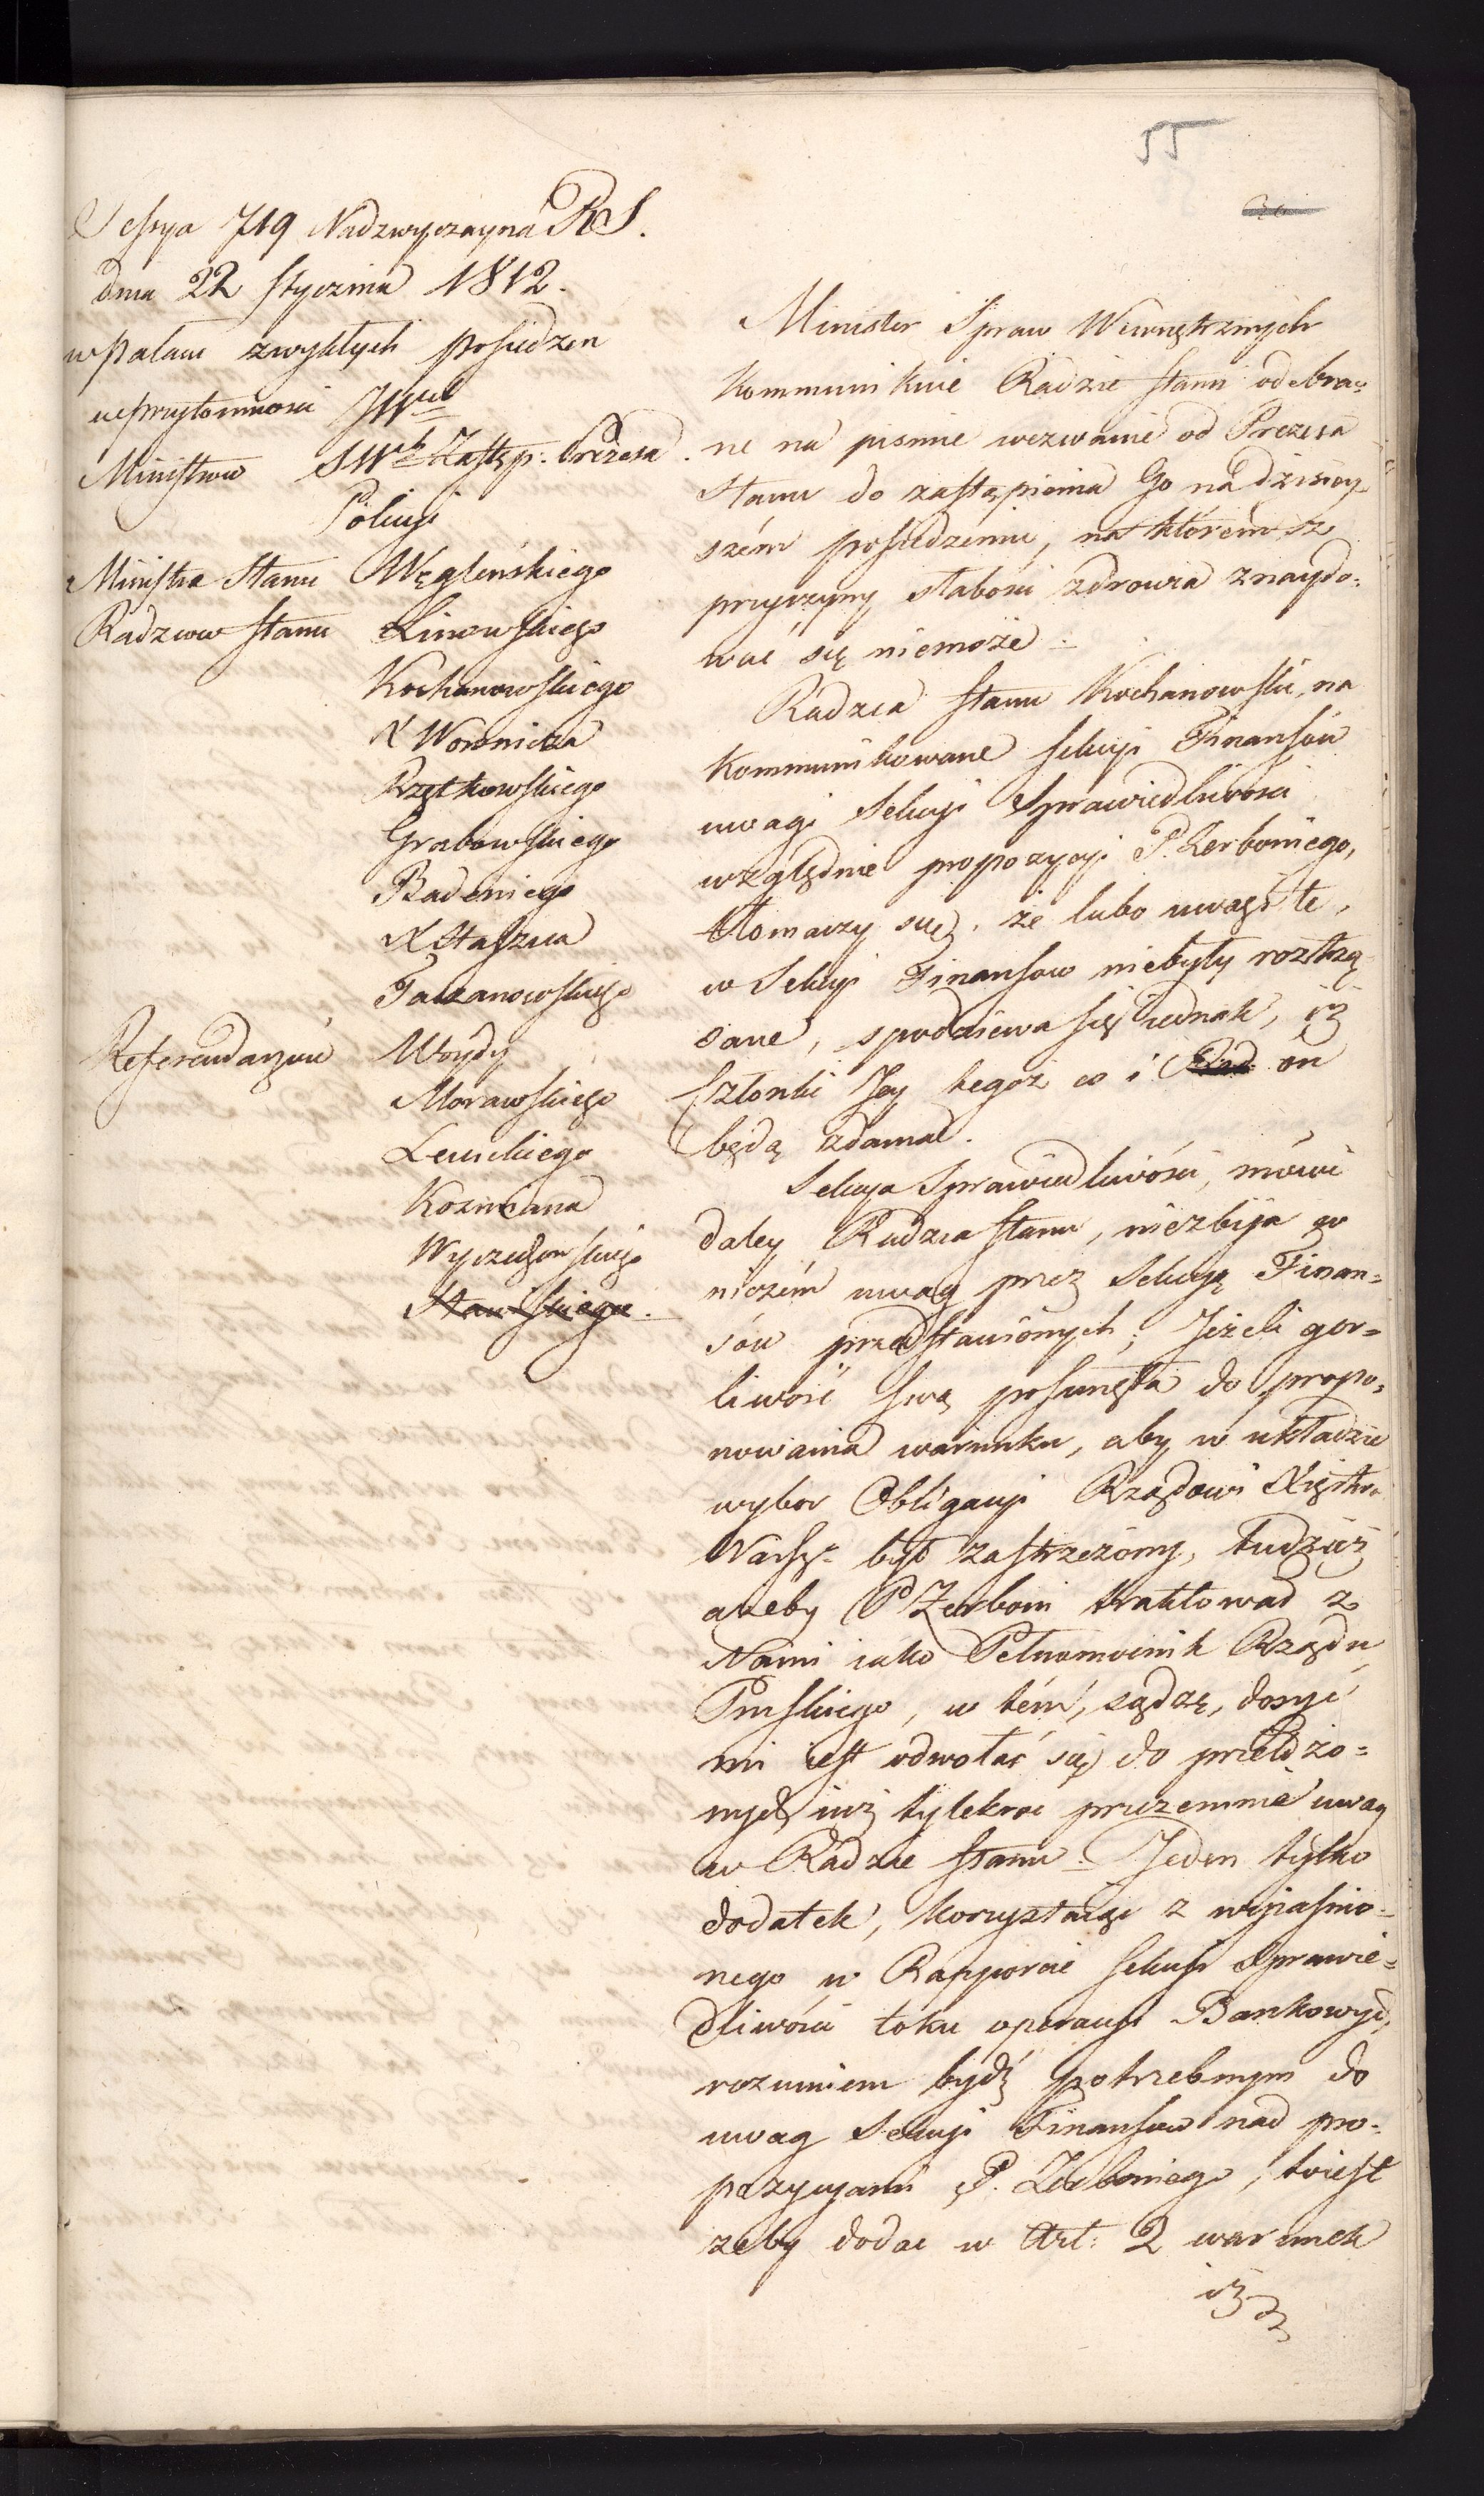 55
Sessya 719 Nadzwyczayna RS.
dnia 22 stycznia 1812.
w Pałacu zwykłych posiedzeń
w przytomnosci JWch
Ministrow SWch Zastęp. Prezesa
Policyi
Ministra Stanu Węgleńskiego
Radzcow stanu Linowskiego
Kochanowskiego
X Woronicza
Rzętkowskiego
Grabowskiego
Badeniego
X Staszica
Taczanowskiego
Referendarzów Woydy
Morawskiego
Lewickiego
Kozmiana
Wyczechowskiego
Stawiskiego
Minister Spraw Wewnętrznych
kommunikuie Radzie stanu odebra=
ne na pismie wezwanie od Prezesa
stanu do zastąpienia Go na dzisiey=
szém posiedzeniu, na którem z
przyczyny słabosci zdrowia znaydo=
wać się niemoże.
Radzca stanu Kochanowski, na
kommunikowane Sekcyi Finansów
uwagi Sekcyi Sprawiedliwosci
względnie propozycyi P. Zerboniego,
tłomaczy się, że lubo uwagi te,
w Sekcyi Finansow niebyły roztrzą=
sane, spodziewa się iednak, iż
Członki Jey tegoż co i Rad on
będą zdania.
Sekcya Sprawiedliwości, mówi
daley Radzca stanu, niezbija w
niczém uwag przez Sekcyę Finan=
sów przedstawionych; Jeżeli gor=
liwość swą posunęła do propo=
nowania warunku, aby w układzie
wybor Obligacyi Rządowi Xięstwa
Warsz. był zastrzeżony, tudzież
ażeby P Zerboni traktował z
Nami iako Pełnomocnik Rządu
Pruskiego, w tém, sądzę, dosyć
mi iest odwołać się do przełożo=
nych iuż tylekroć przezemnie uwag
w Radzie stanu. Jeden tylko
dodatek, korzystaiąc z wyiasnio=
nego w Rapporcie Sekcyi Sprawie=
dliwości toku operacyi Bankowych,
rozumiem bydź potrzebnym do
uwag Sekcyi Finansow nad pro=
pozycyami P. Zerboniego, to iest
zeby dodac w Art: 2 warunek
iż z